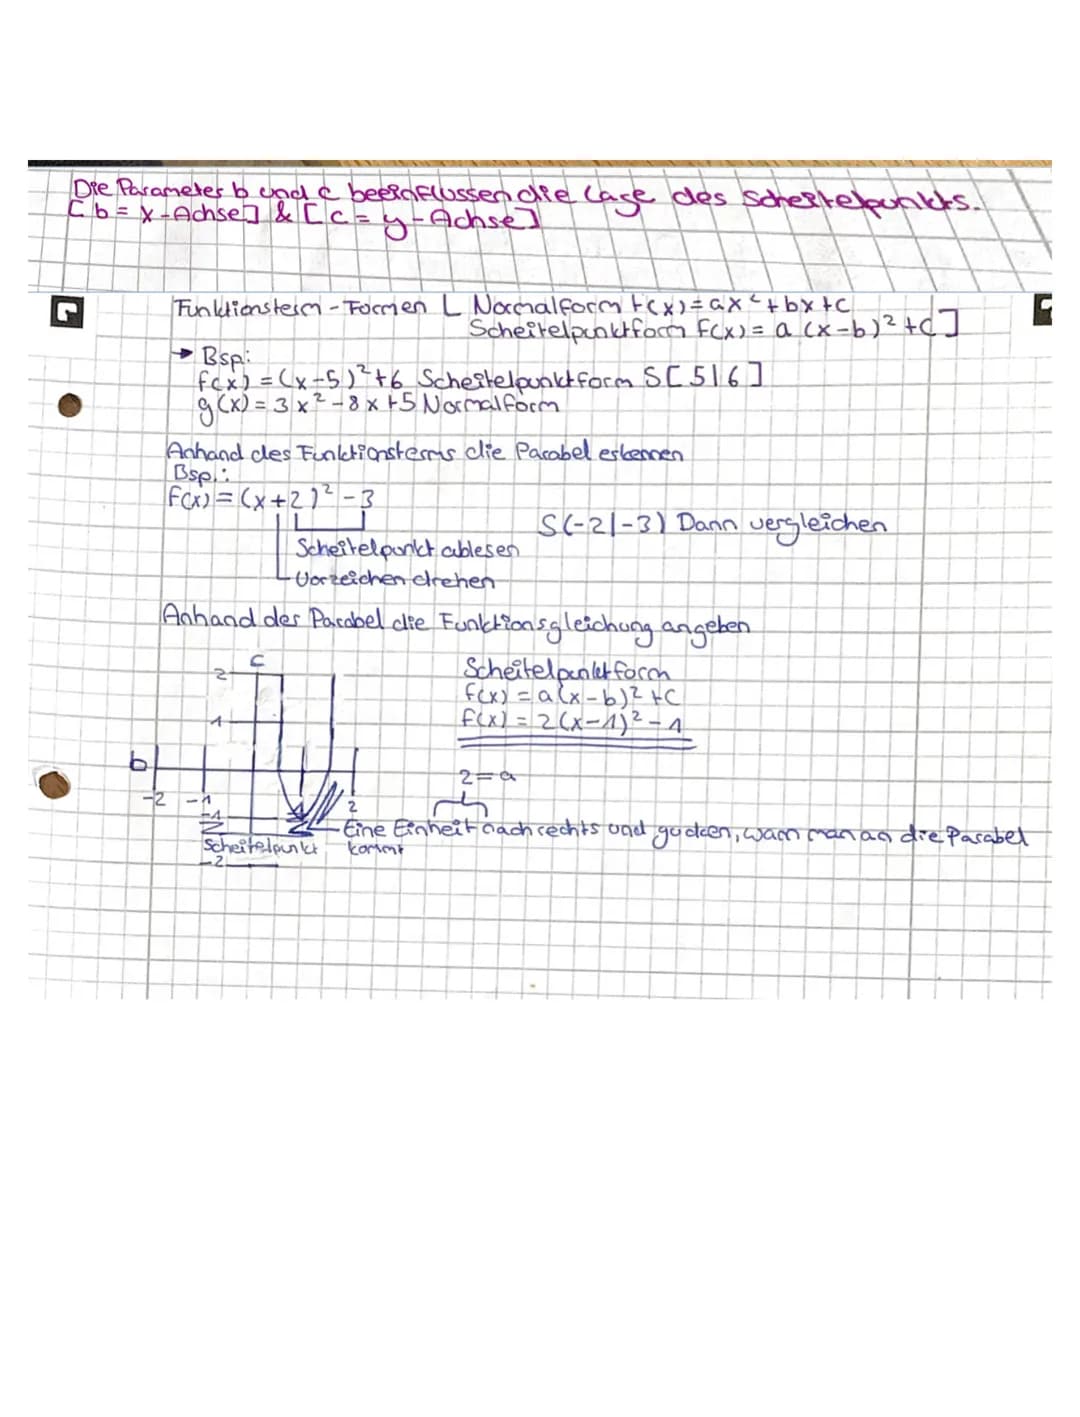 Die Parameter b und c beeinflussen die Lage des Scheitelpunkts.
[b = x-Achse] & [c = y-Achse]
Funktionsterm-Formen [ Normalform f(x) = ax² + bx + c
Scheitelpunktform f(x) = a (x-b)² + c]
→ Bsp:
f(x) = (x-5)² + 6 Scheitelpunktform S[5|6]
g(x) = 3x² - 8x + 5 Normalform
Anhand des Funktionsterms die Parabel erkennen
Bsp.:
f(x) = (x+2)² - 3
S(-2|-3) Dann vergleichen
Scheitelpunkt ablesen
Vorzeichen drehen
Anhand der Parabel die Funktionsgleichung angeben
c
2
1
b
-2 -1
2
-1
Scheitelpunkt
-2
Scheitelpunktform
f(x) = a(x-b)² + c
f(x) = 2(x-1)² - 1
2 = a
Eine Einheit nach rechts und gucken, wann man an die Parabel
kommt